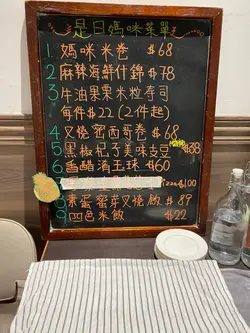 是日媽咪菜單
1. 媽咪米卷 $68
2 麻辣海鮮什錦 $78
3 牛油果果米粒寿司
每件 $22 (2件起)
4 叉燒蜜西哥卷 $68
5 黑椒杞子美味 $38
6 香醋酒玉球 $60
$100
8 栗蛋蜜芽叉燒飯 $89
9 四色米飯 $22